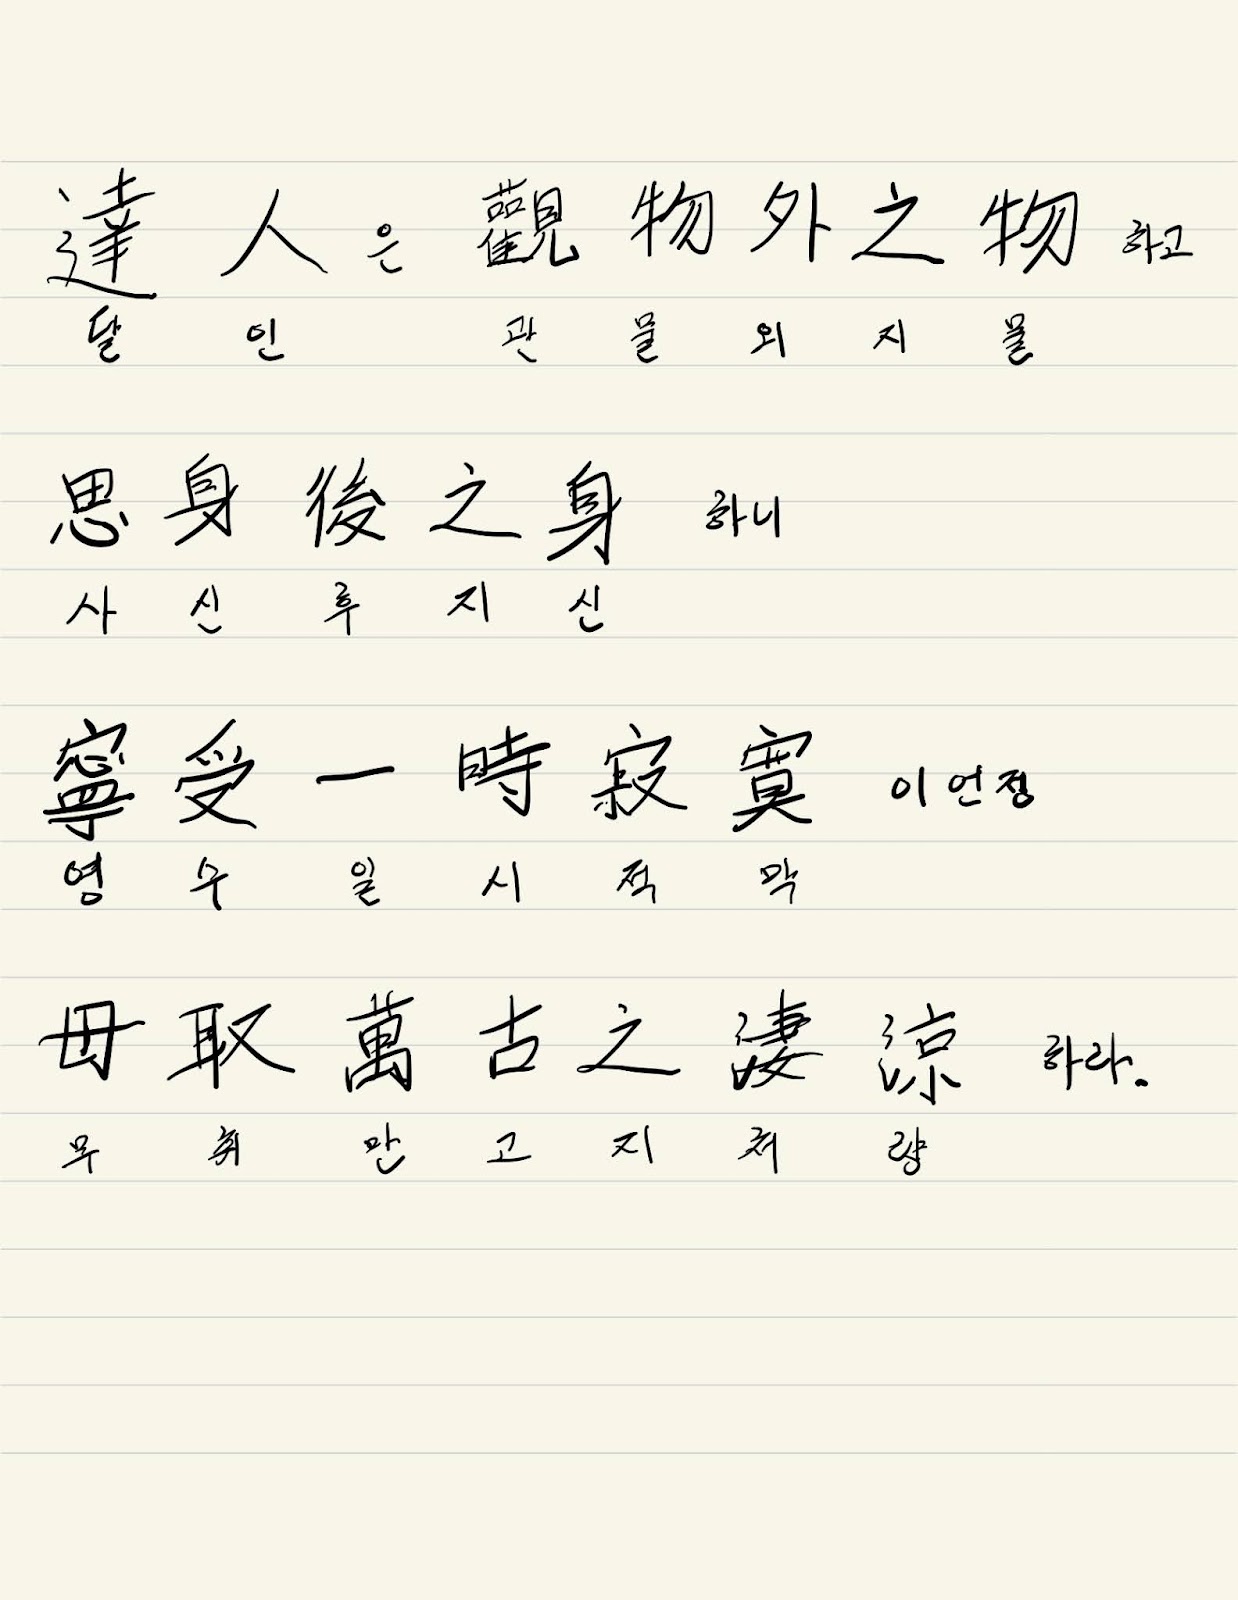 達人은 觀物外之物하고
달 인 관 물 외 지 물
思身後之身 하니
사 신 후 지 신
寧受一時寂寞 이언정
영 수 일 시 적 막
毋取萬古之淒涼 하라.
무 취 만 고 지 처 량